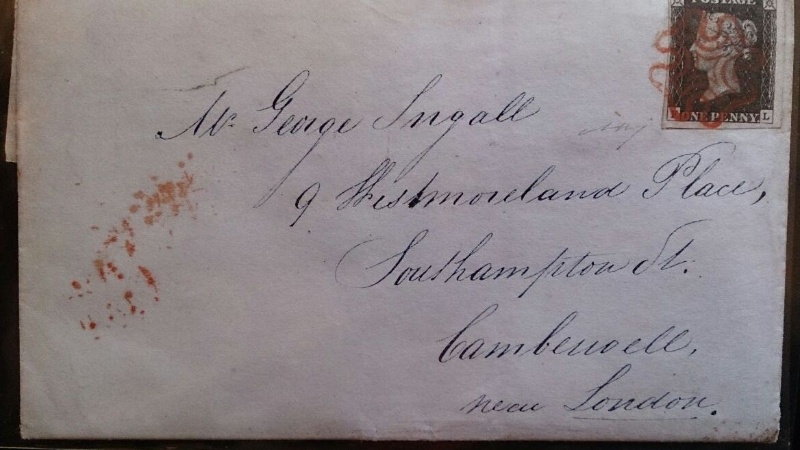 POSTAGE
ONE PENNY L
Mr. George Ingall
9 Westmoreland Place,
Southampton St.
Camberwell,
near London.